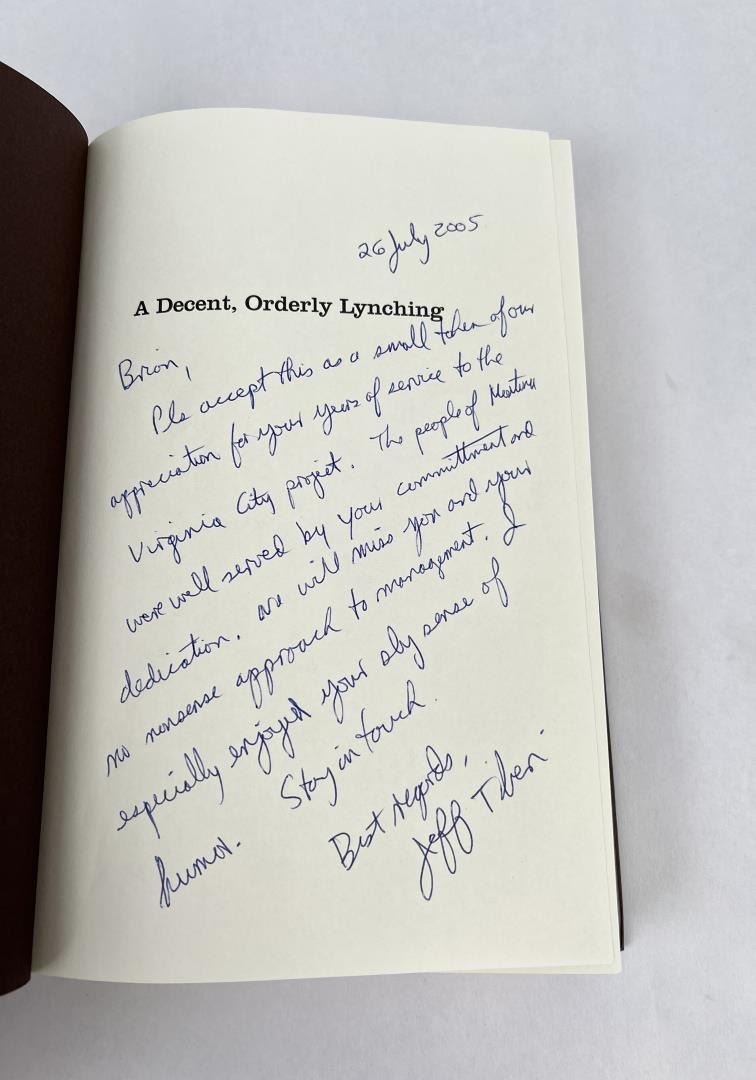 26 July 2005
A Decent, Orderly Lynching
Brian,
Pls accept this as a small token of our
appreciation for your years of service to the
Virginia City project. The people of Montana
were well served by your committment and
dedication. We will miss you and your
no nonsense approach to management. I
especially enjoyed your sly sense of
humor. Stay in touch.
Best regards,
Jeff Tiberi